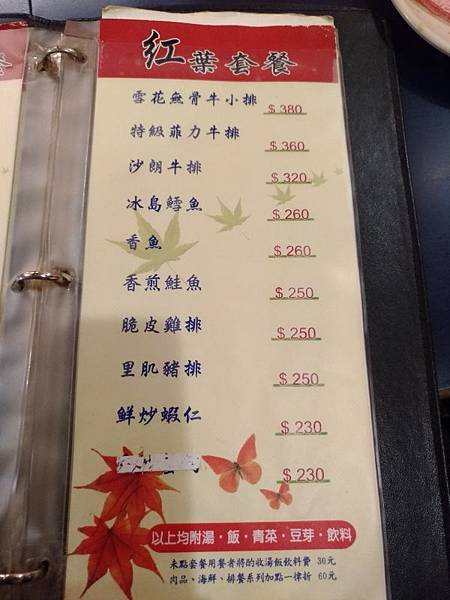 紅葉套餐
雪花無骨牛小排 $380
特級菲力牛排 $360
沙朗牛排 $320
冰島鱈魚 $260
香魚 $260
香煎鮭魚 $250
脆皮雞排 $250
里肌豬排 $250
鮮炒蝦仁 $230
$230
以上均附湯·飯·青菜·豆芽·飲料
未點套餐用餐者將酌收湯飯飲料費 30元
肉品、海鮮、排餐系列加點一律折 60元